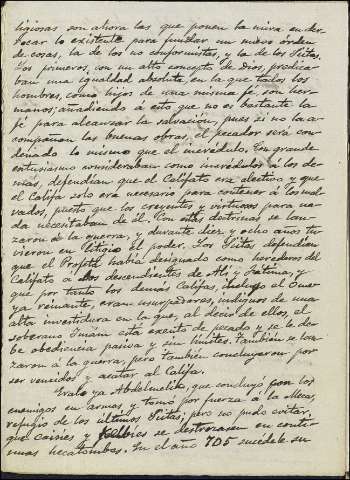 ligiosas son ahora las que ponen la mira en der-
rocar lo existente para fundar un nuevo orden
de cosas, la de los no conformistas, y la de los Siitas.
Los primeros, con un alto concepto de Dios, predica-
ban una igualdad absoluta en la que todos los
hombres, como hijos de una misma fé, son her-
manos; añadiendo á esto que no es bastante la
fé para alcanzar la salvación, pues si no la a-
compañan las buenas obras, el pecador será con-
denado lo mismo que el incrédulo. Con grande
entusiasmo consideraban como incrédulos á los de-
más, defendian que el Califato era electivo y que
el Califa solo era necesario para contener á los mal-
vados, puesto que los creyentes y virtuosos para na-
da necesitaban de él. Con estas doctrinas se lan-
zaron de la guerra, y durante diez y ocho años tu-
vieron en litigio el poder. Los Siitas defendian
que el Profeta habia designado como herederos del
Califato á los descendientes de Alí y Fátima, y
que por tanto los demás Califas, incluso el Omeya
reinante, eran usurpadores, indignos de una
alta investidura en la que, al decir de ellos, el
soberano Imam está exento de pecado y se le de-
be obediencia pasiva y sin limites. Tambien se lan-
zaron á la guerra, pero tambien concluyeron por
ser vencidos y acatar al Califa.
ya Abdelmelik, que concluyó con los
enemigos en armas y tomó por fuerza á la Meca,
refugio de los últimos Siitas; pero no pudo evitar
que caisíes y kelbies se destrozasen en conti-
nuas hecatombes. En el año 705 sucédele su